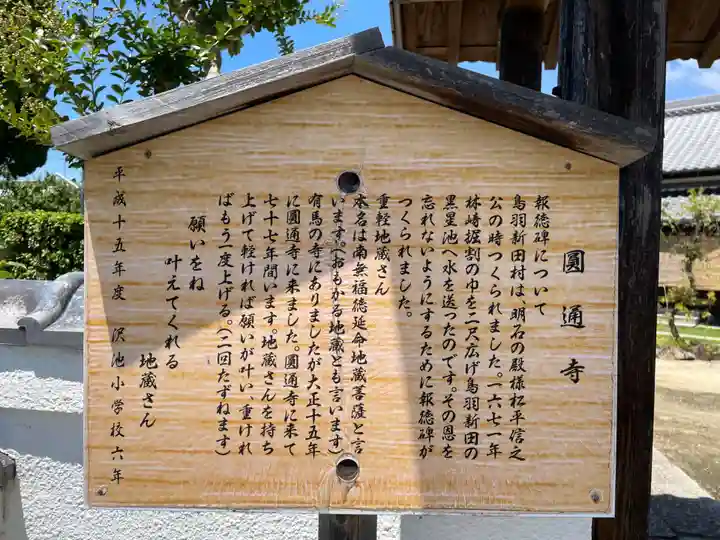 圓通寺
報徳碑について
鳥羽新田村は、明石の殿様松平信之
公の時つくられました。一六七一年
林崎掘割の巾を二尺広げ鳥羽新田の
黒星池へ水を送ったのです。その恩を
忘れないようにするために報徳碑が
つくられました。
重軽地蔵さん
本名は南無福徳延命地蔵菩薩と言
います。（おもかる地蔵とも言います）
有馬の寺にありましたが大正十五年
に圓通寺に来ました。圓通寺に来て
七十七年間います。地蔵さんを持ち
上げて軽ければ願いが叶い、重けれ
ばもう一度上げる。（二回たずねます）
願いをね
叶えてくれる
地蔵さん
平成十五年度 沢池小学校六年